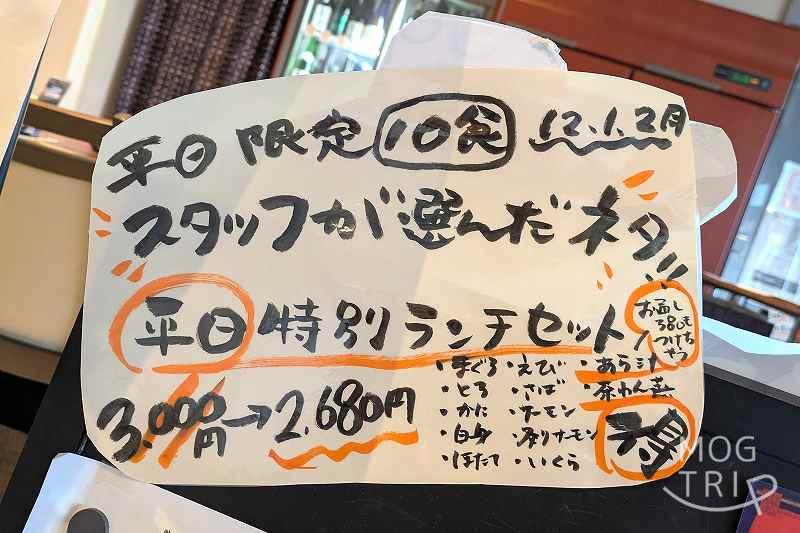 平日 限定 10食 12.1.2月
スタッフが選んだネタ!!
平日 特別ランチセット!
お通し
380円も
つけち
ゃう
3,000円→2,680円
・まぐろ ・えび ・あら汁
・とろ ・さば ・茶わん蒸
・かに ・サーモン
・白身 ・炙りサーモン
・ほたて ・いくら
お得
MOG
TRIP